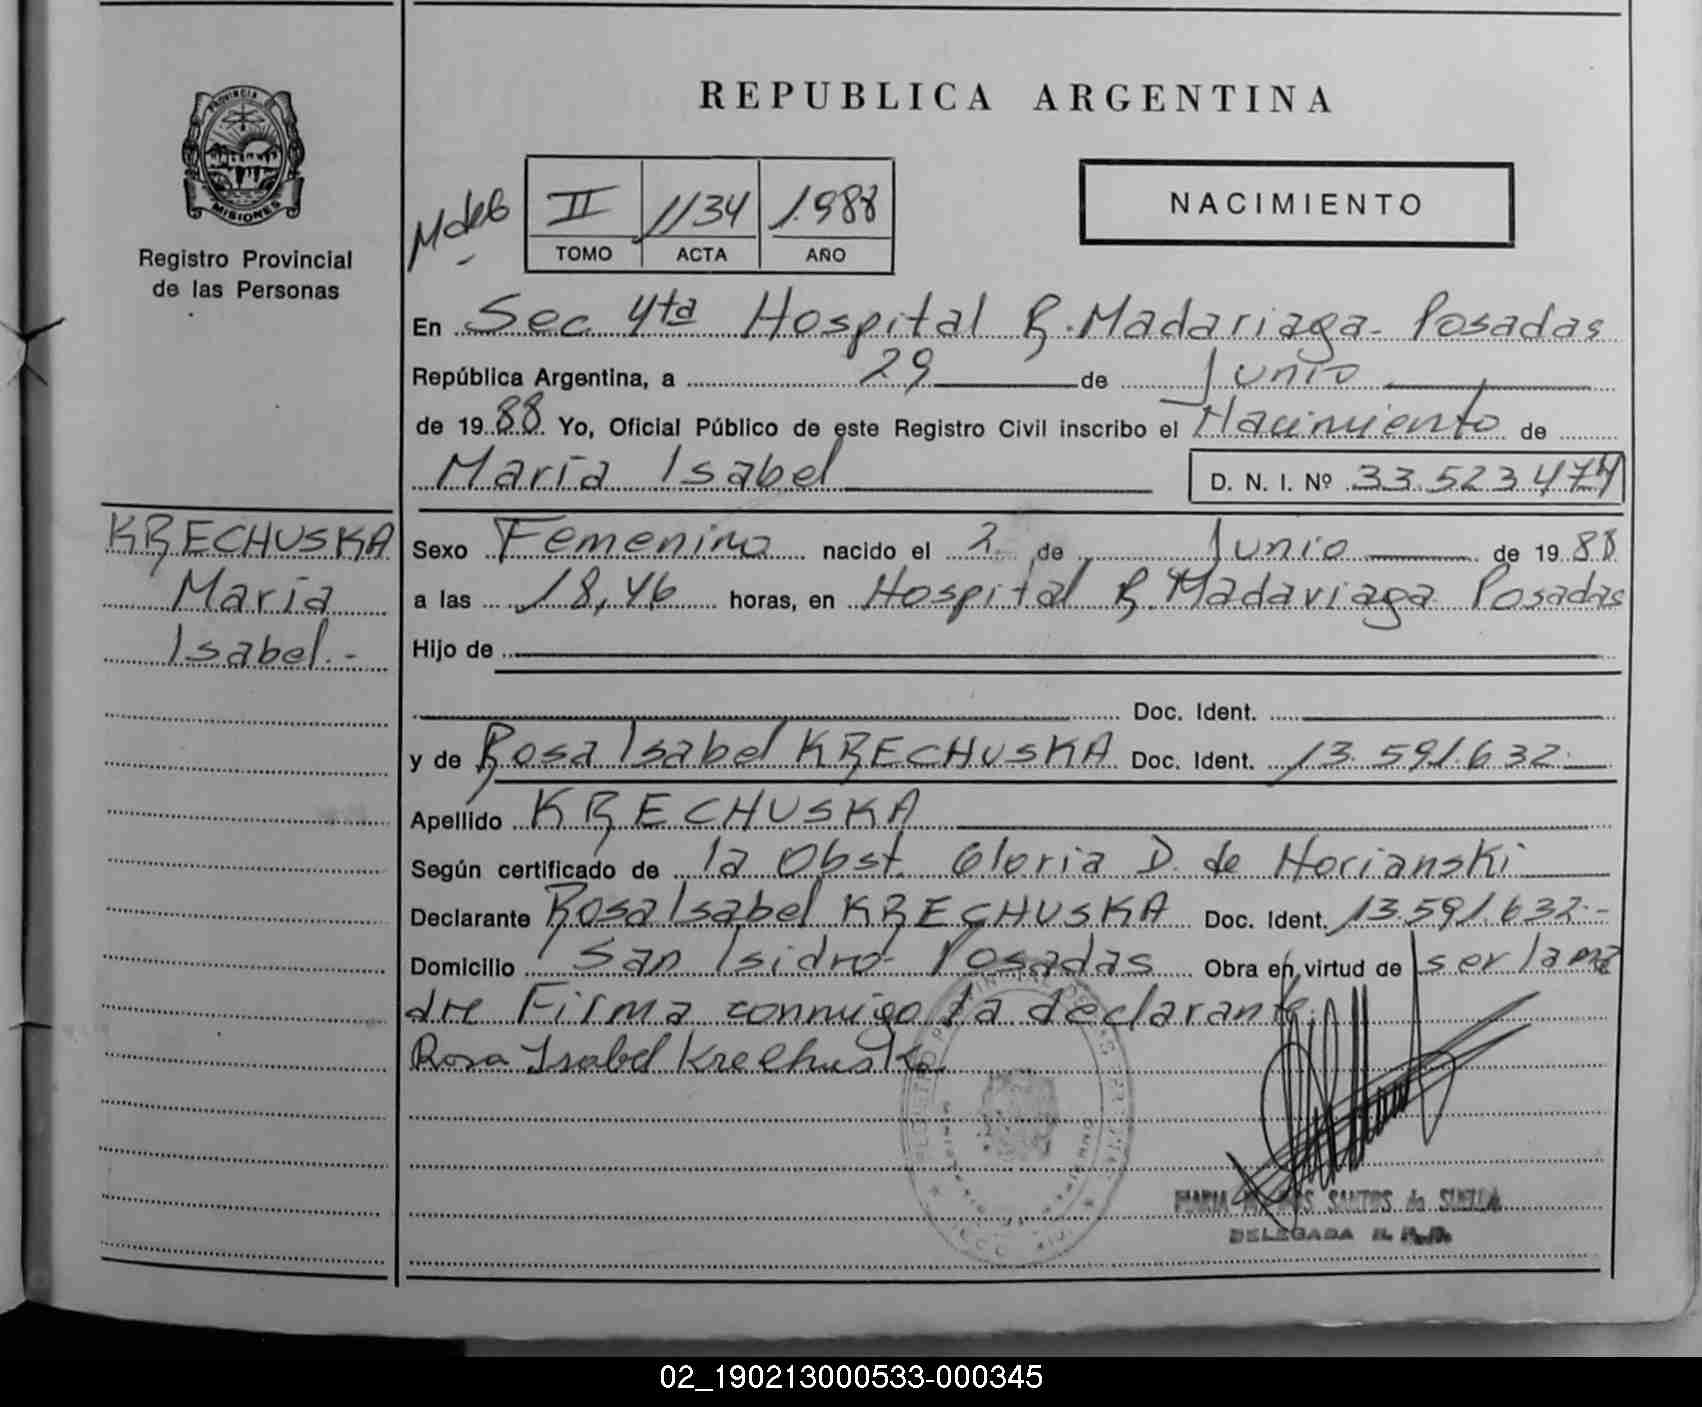 REPUBLICA ARGENTINA
PROVINCIA DE
MISIONES
Registro Provincial
de las Personas
II 1134 1.988
TOMO ACTA AÑO
NACIMIENTO
En Sec. 4ta Hospital R. Madariaga- Posadas
República Argentina, a 29 de Junio
de 1988. Yo, Oficial Público de este Registro Civil inscribo el Nacimiento de
María Isabel D. N. I. Nº 33.523.474
KRECHUSKA
María
Isabel.-
Sexo Femenino nacido el 2 de Junio de 1988
a las 18,46 horas, en Hospital R. Madariaga Posadas
Hijo de
Doc. Ident.
y de Rosa Isabel KRECHUSKA Doc. Ident. 13.591.632.
Apellido KRECHUSKA
Según certificado de la Obst. Gloria D. de Horianski
Declarante Rosa Isabel KRECHUSKA Doc. Ident. 13.591.632.-
Domicilio San Isidro- Posadas Obra en virtud de ser la ma
dre Firma conmigo la declarante.
Rosa Isabel Krechuska
MARIA SANTOS de
DELEGADA R. P. P.
02_190213000533-000345